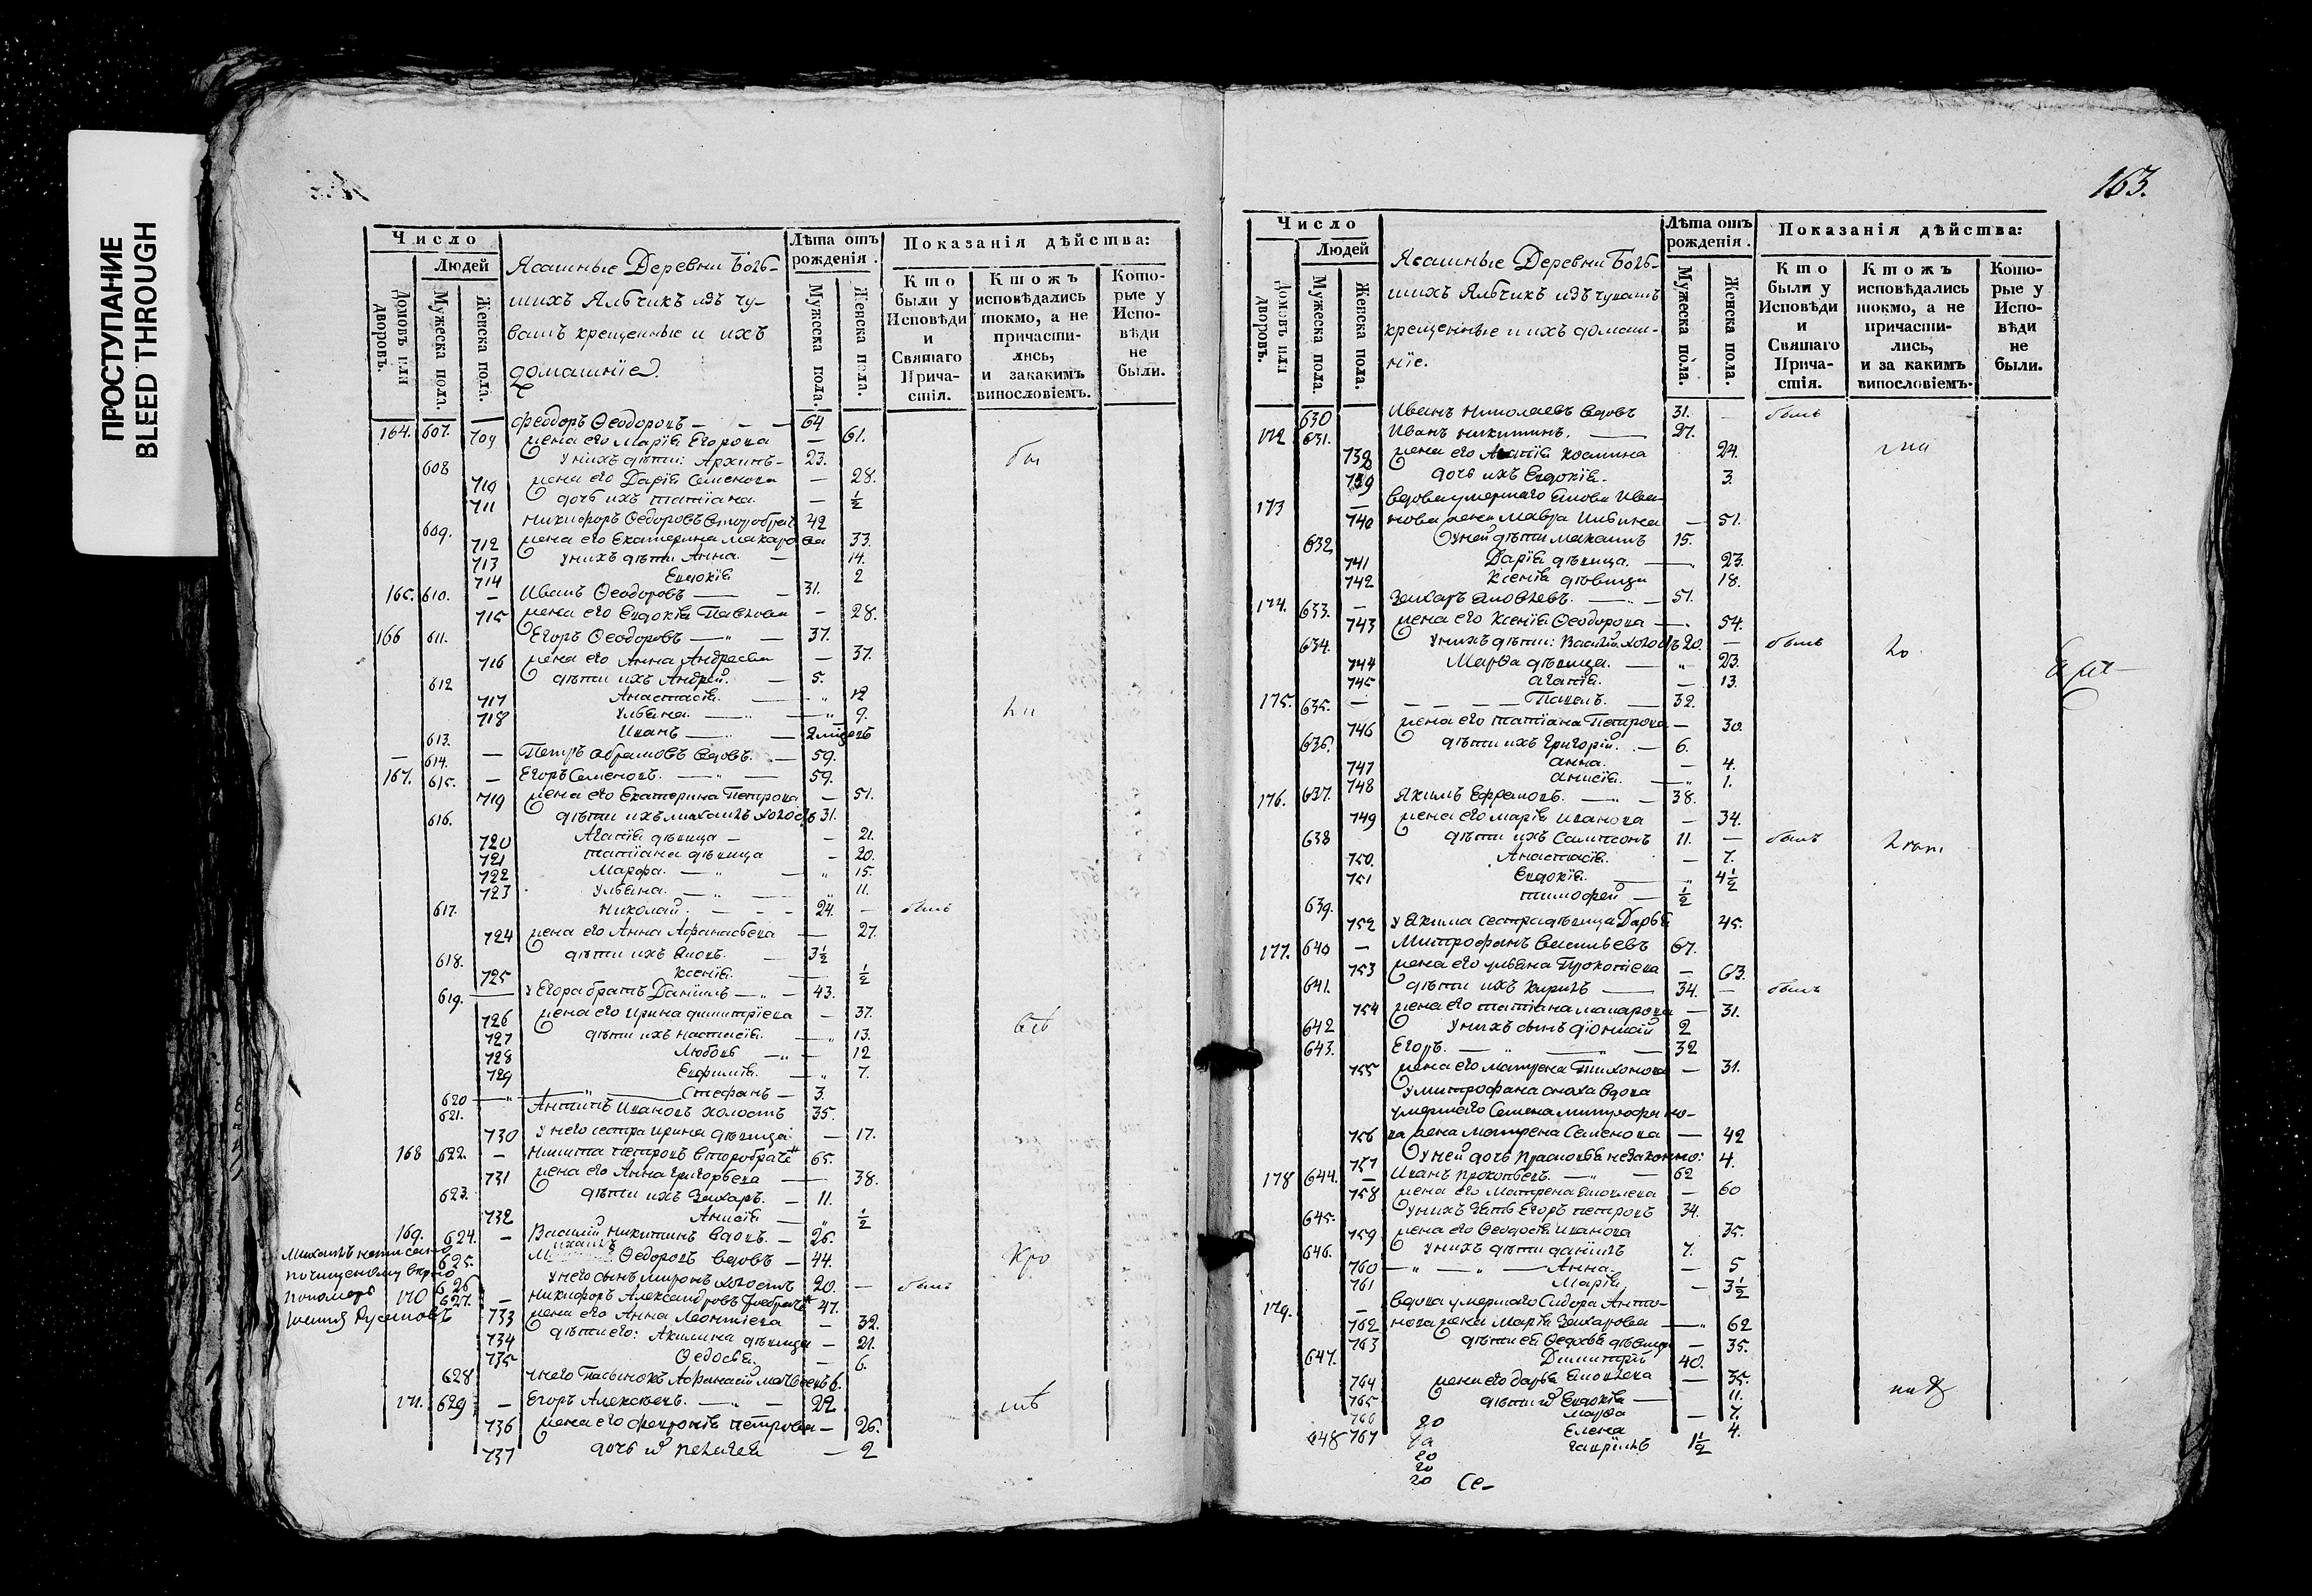 ПРОСТУПАНИЕ
BLEED THROUGH
163.
Число
Людей
Домовъ или дворовъ.
Мужеска пола.
Женска пола.
Ясашные Деревни Боль-
шихъ Яльчикъ изъ чу-
вашъ крещенные и ихъ
домашнïе.
Лѣта отъ рожденія.
Мужеска пола.
Женска пола.
Показанія дѣйства:
Кто были у Исповѣди и Святаго Прича-стія.
Ктожъ исповѣдались токмо, а не причасти-лись, и закакимъ винословіемъ.
Кото-рые у Испо-вѣди не были.
164. 607. Феодоръ Ѳеодоровъ — 64
709 жена его Марïя Егорова — 61.
608 у нихъ дѣти: Архипъ 23.
710 жена его Дарïя Семенова — 28.
711 дочь ихъ татïана. — ½
609. никифоръ Ѳедоровъ 42
712 жена его Екатерина Макарова 33.
713 у нихъ дѣти Анна. — 14.
714 Евдокïя 2
165. 610. — Иванъ Ѳеодоровъ — 31.
715 жена его Евдокïя Павлова — 28.
166 611. Егоръ Ѳеодоровъ — 37.
716 жена его Анна Андреева — 37.
612 дѣти ихъ Андрей. — 5.
717 Анастасïя. — 12
718 Ульяна. — 9.
613. Иванъ —
— 614. — Петръ Абрамовъ вдовъ. — 59.
167. 615. — Егоръ Семеновъ. — 59.
719 жена его Екатерина Петрова — 51.
616. дѣти ихъ михаилъ холостъ 31.
720 Агапïя дѣвица — 21.
721 татïана дѣвица — 20.
722 Марфа. — 15.
723 Ульяна. — 11.
617. Николай. — 24. — былъ
724 жена его Анна Афанасьева — 27.
618. дѣти ихъ Яковъ. — 3½
725 Ксенïя. — ½
619. — у Егора братъ Данïилъ — 43.
726 жена его Ирина димитрïева — 37.
727 дѣти ихъ настасïя. — 13.
728 Любовь — 12
729 Евфимïя. — 7.
620 — Стефанъ — 3.
621. Антипъ Ивановъ холостъ 35.
730 У него сестра Ирина дѣвица — 17.
168 622. — Никита петровъ 65.
731 жена его Анна Григорьева — 38.
623. дѣти ихъ Захаръ. — 11.
732 Анисïя — ½
169. 624. — Василïй Никитинъ вдовъ. — 26.
625. Михаилъ Ѳедоровъ вдовъ — 44.
Михаилъ написано
по чищеному
пономарь
626 у него сынъ миронъ холостъ 20. — былъ
170 627. — никифоръ Александровъ 47.
733 жена его Анна Леонтïева — 32.
734 дѣти его: Акилина дѣвица — 21.
735 Ѳедосья. — 6.
628 у него Пасынокъ Афанасïй 6.
171. 629 — Егоръ Алексѣевъ. — 22
736 жена его февронïя петрова — 26.
737 дочь их пелагея — 2
Число
Людей
Домовъ или дворовъ.
Мужеска пола
Женска пола.
Ясашные Деревни Боль-
шихъ Яльчикъ изъ чувашъ
крещенные и ихъ домаш-
нïе.
Лѣта отъ рожденія.
Мужеска пола.
Женска пола.
Показанія дѣйства:
Кто были у Исповѣди и Святаго Прича-стія.
Ктожъ исповѣдались токмо, а не причасти-лись, и за какимъ винословіемъ.
Кото-рые у Испо-вѣди не были.
630 Иванъ Николаевъ вдовъ 31. — былъ
172 631. Иванъ никитинъ. — 27.
738 жена его Агапïя 24.
739 дочь ихъ Евдокïя. 3.
173 — вдова умершаго Якова Ива-
740 нова жена Мавра Ильина — 51.
632 У ней дѣти 15.
741 Дарïя дѣвица. — 23.
742 Ксенïя дѣвица 18.
174. 633. — Захаръ Яковлевъ. — 51.
743 жена его Ксенïя Ѳеодорова — 54.
634. у нихъ дѣти: Василïй холостъ 20. — былъ
744 Марѳа дѣвица. — 23.
745 Агапïя. — 13.
175. 635. — Павелъ. — 32.
746 жена его татïана Петрова — 30.
636. дѣти ихъ Григорïй. — 6.
747 Анна. — 4.
748 Анисïя. — 1.
176. 637. Якимъ Ефремовъ. — 38.
749 жена его марïя Иванова — 34.
638 дѣти ихъ Сампсонъ 11. — былъ
750. Анастасïя. — 7.
751 Евдокïя. — 4½
639. тимофей — ½
752 у Якима сестра дѣвица Дарья 45.
177. 640 — Митрофанъ Васильевъ 67.
753 жена его ульяна Прокопïева — 63.
641. дѣти ихъ Кирилъ — 34. — былъ
754 жена его татïана макарова — 31.
642 У нихъ сынъ дïонисïй 2
643. Егоръ. — 32
755 жена его матрена Тихонова — 31.
У митрофана сноха вдова
умершаго Семена митрофано-
756 ва жена матрена Семенова — 42
757 У ней дочь Прасковья незаконно: 4.
178 644. — Иванъ Прокопьевъ. — 62
758 жена его Матрена яковлева — 60
645. У нихъ зять Егоръ петровъ 34.
759 жена его Ѳеодосïя Иванова 35.
646. У нихъ дѣти данïилъ 7.
760 — Анна. — 5
761 Марïя — 3½
179. — вдова умершаго Сидора Анто-
762 нова жена Марïя Захарова — 62
763 дѣти ея Ѳедосья дѣвица — 35.
647. Димитрïй 40.
764 жена его дарья Яковлева — 35.
765 дѣти их Евдокïя — 11.
766 марѳа — 7.
Елена 4.
648 767 гаврïилъ 1½
20
20
20
Се-